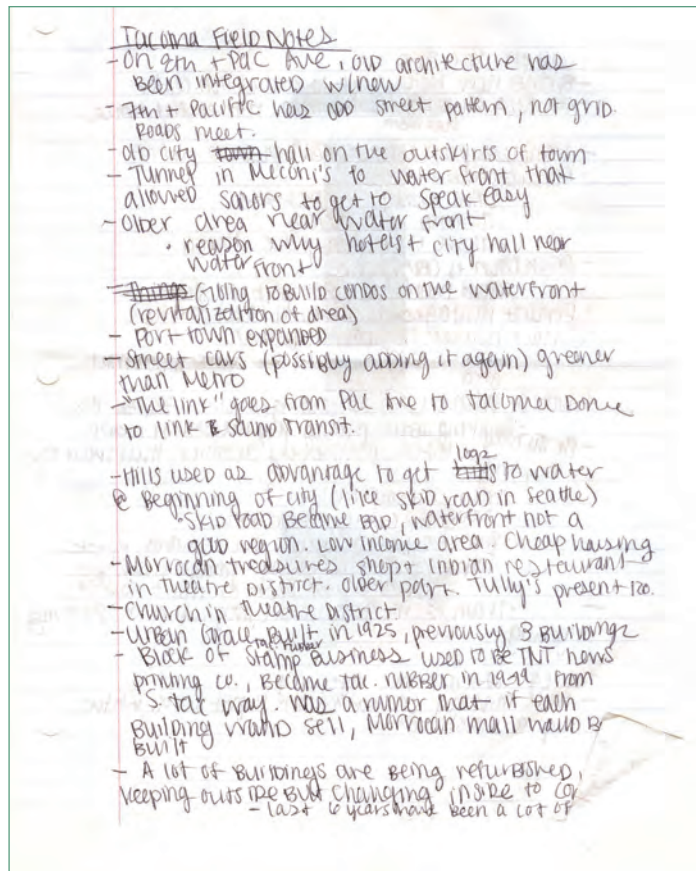 Tacoma Field Notes
- On 9th + Pac Ave, old architecture has
been integrated w/new
- 7th + Pacific has odd street pattern, not grid.
Roads meet.
- Old city town hall on the outskirts of town
- Tunnel in Meconi's to water front that
allowed sailors to get to speak easy
- Older area near water front
• reason why hotels + city hall near
waterfront
- Things Going to build condos on the waterfront
(revitalization of area)
- Port town expanded
- Street cars (possibly adding it again) greener
than Metro
- "The link" goes from Pac Ave to Tacoma Dome
to link Sound Transit.
- Hills used as advantage to get logs to water
@ Beginning of city (like skid road in Seattle)
• Skid road became bad, waterfront not a
good region. Low income area. Cheap housing
- Morrocan treasures shop + Indian restaurant
in Theatre District. Older part. Tully's present too.
- Church in Theatre District
- Urban Grace, Built in 1925, previously 3 buildings
- Block of Stamp Business used to be TNT news
printing co., Became tac. rubber in from
S. tac way. Was a rumor that if each
building would sell, Morrocan mall would B
built
- A lot of buildings are being refurbished,
keeping outside but changing inside to
- last 6 years have been a lot of